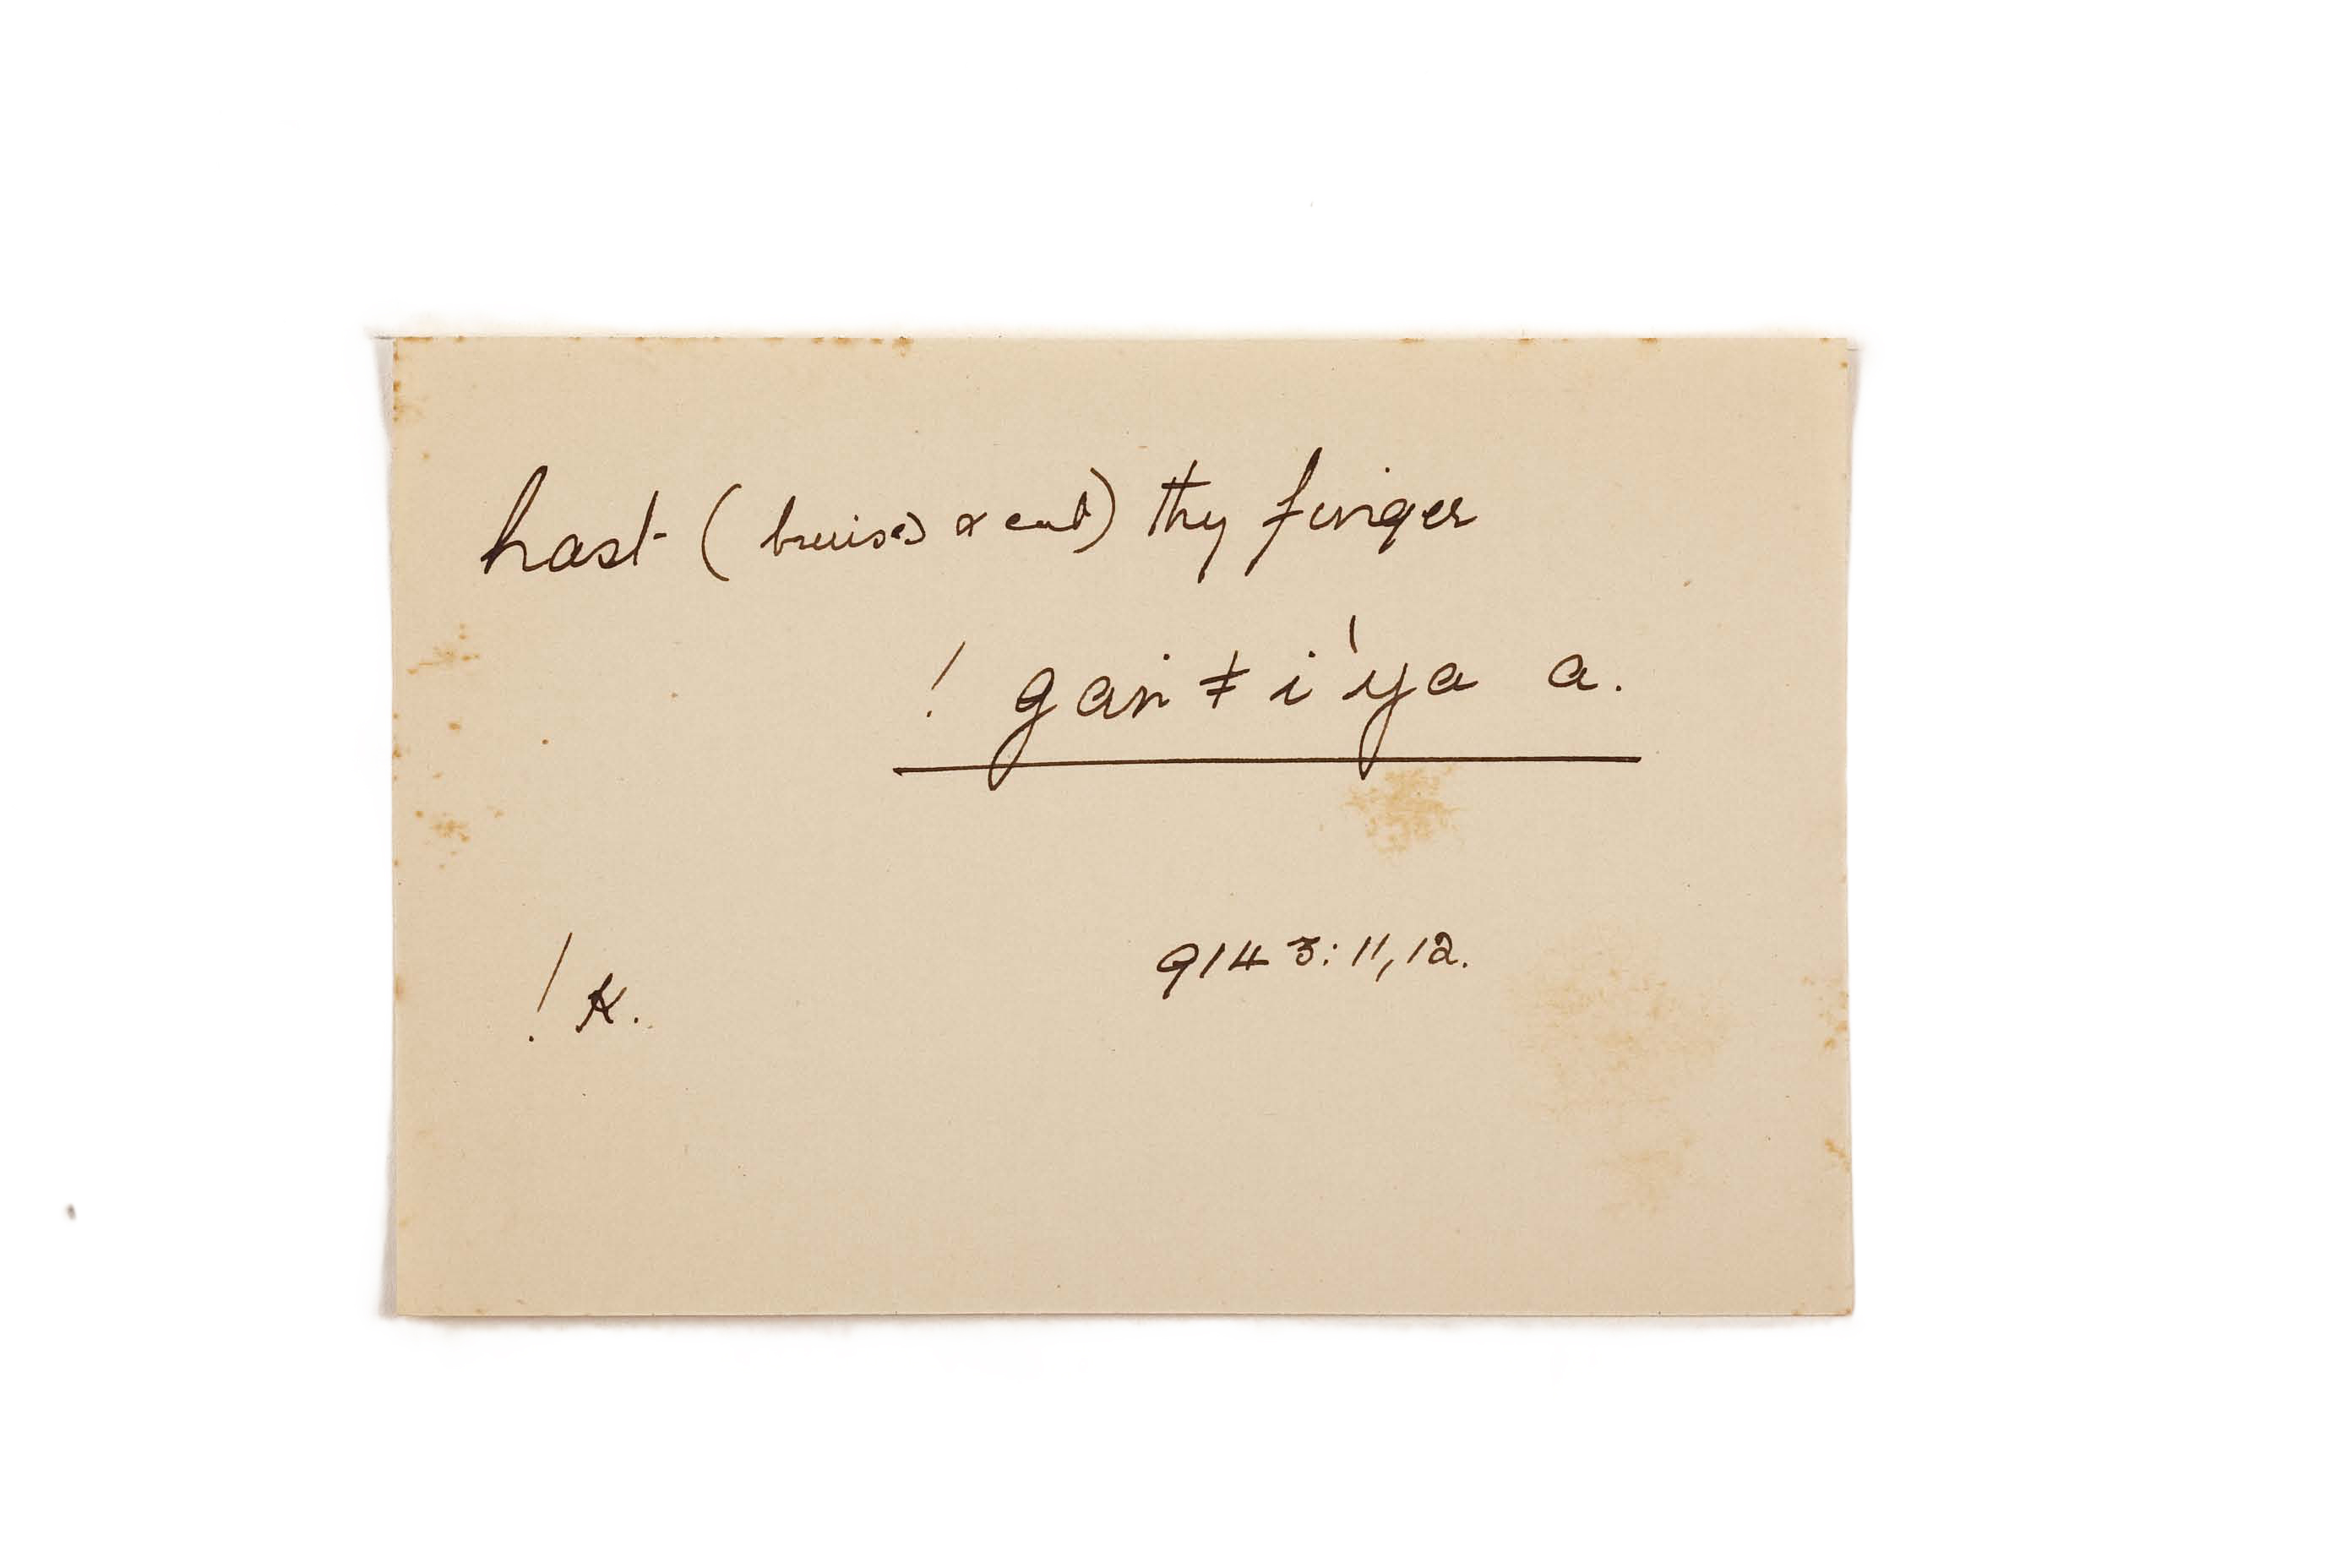 hast (bruised & cut) thy finger
! gan ǂ i 'ya a.
9143:11,12.
! K.